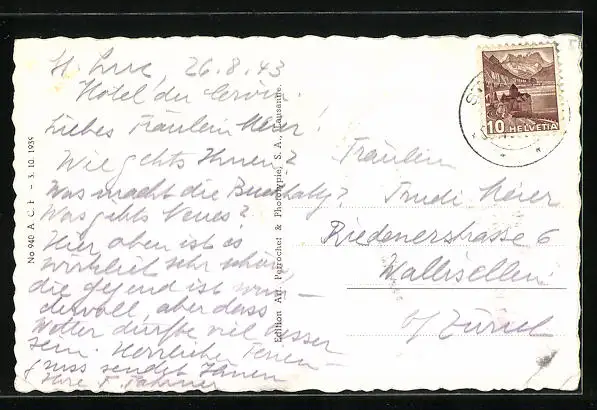 St. Luc, 26.8.43
Hôtel du Cervin.
Liebes Fräulein Meier!
Wie gehts Ihnen?
Was macht die Buchhaltg?
Was gehts Neues?
Hier oben ist es
wirklich sehr schön,
die gegend ist wun-
dervoll, aber dass
Wetter dürfte viel besser
sein. Herrlichen Ferien-
gruss sendet Ihnen
Ihre F.
No 940 A C F - 3. 10. 1939
Edition Art. Perrochet & Phototypie, S. A., Lausanne.
10 HELVETIA
Fräulein
Trudi Meier
Riedenerstrasse 6
Wallisellen
b/ Zürich